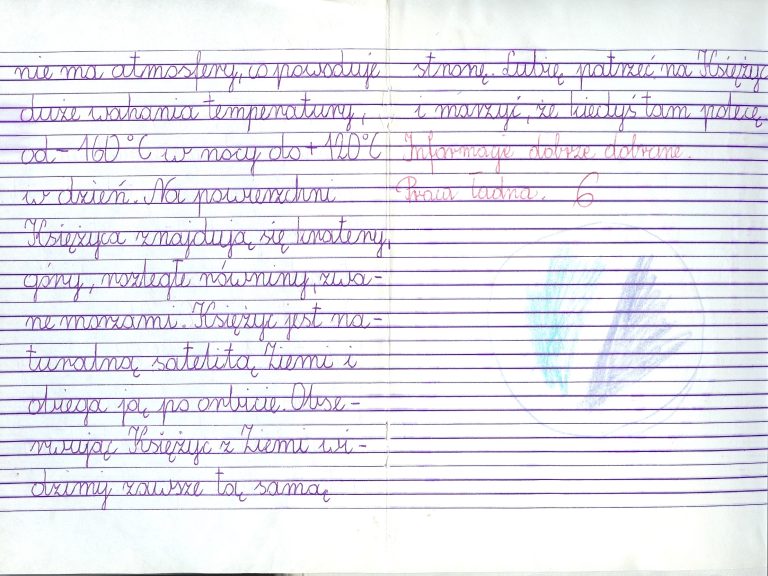 nie ma atmosfery, co powoduje
duże wahania temperatury,
od - 160°C w nocy do + 120°C
w dzień. Na powierzchni
Księżyca znajdują się kratery,
góry, rozległe równiny, zwa-
ne morzami. Księżyc jest na-
turalną satelitą Ziemi i
obiega ją po orbicie. Obse-
rwując Księżyc z Ziemi wi-
dzimy zawsze tą samą
stronę. Lubię patrzeć na Księżyc
i marzyć, że kiedyś tam polecę
Informacje dobrze dobrane.
Praca ładna. 6